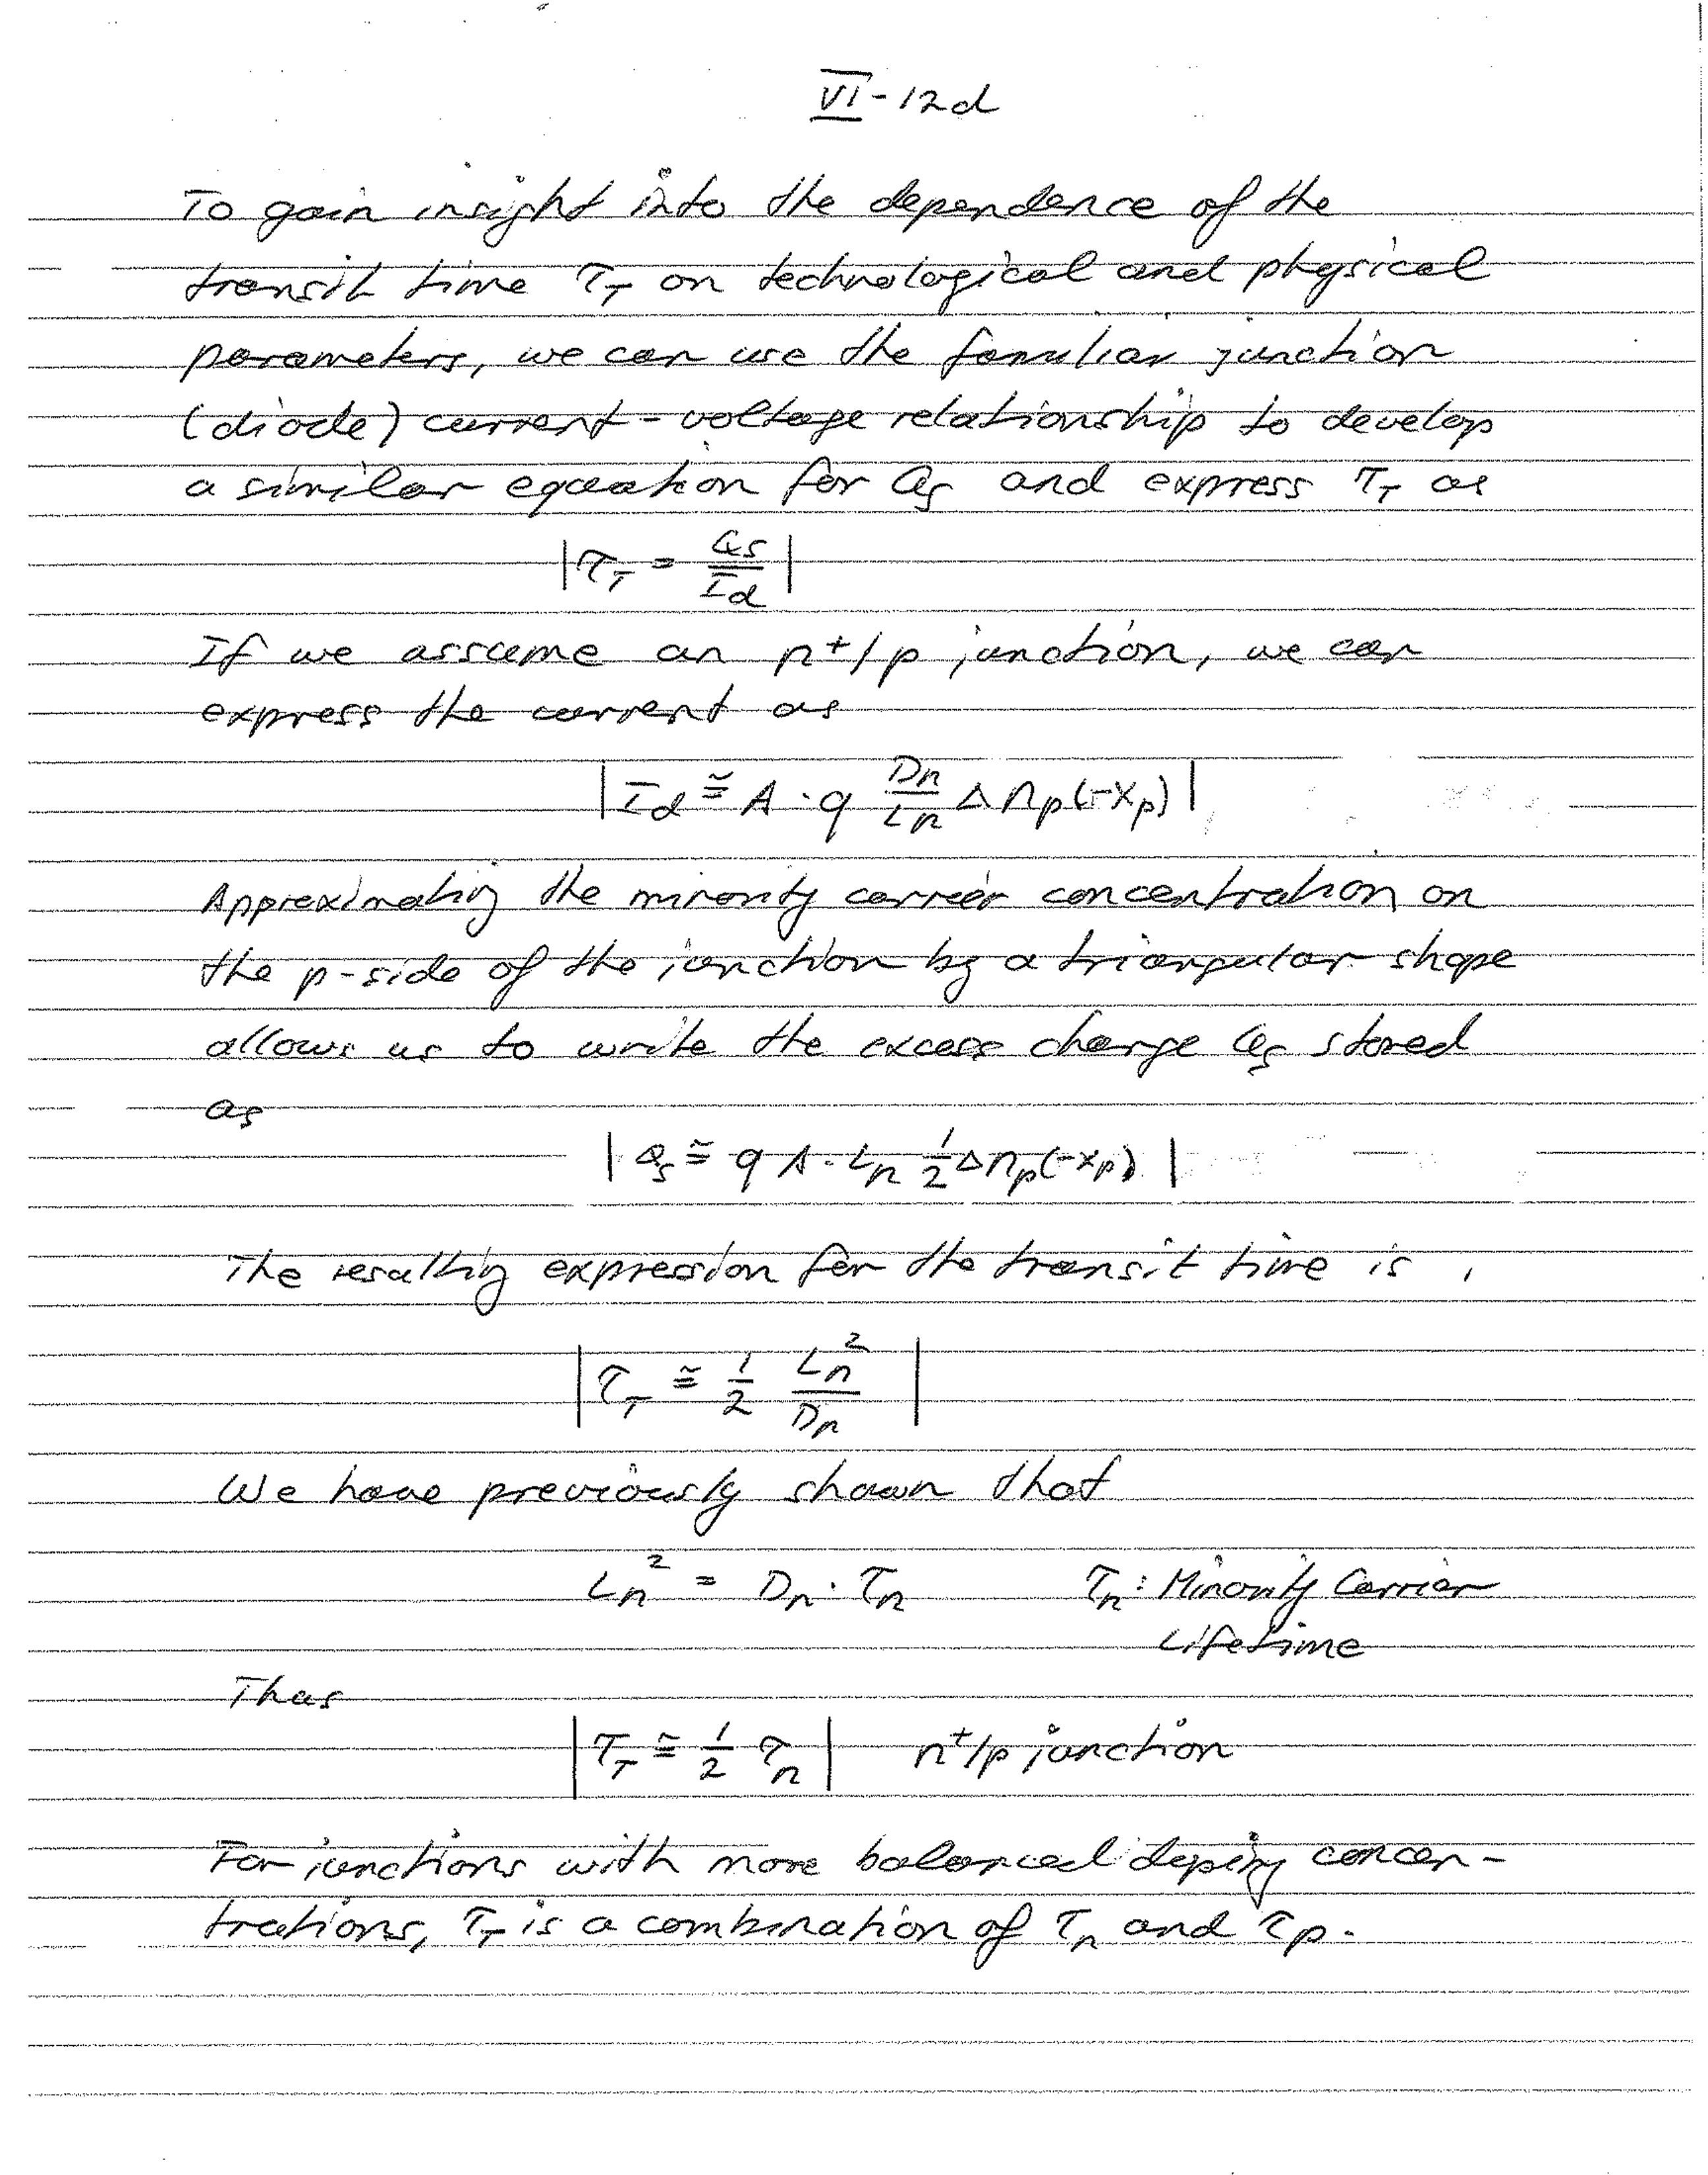 VI-12d
To gain insight into the dependence of the
transit time τ_T on technological and physical
parameters, we can use the familiar junction
(diode) current-voltage relationship to develop
a similar equation for Q_S and express τ_T as
|τ_T = Q_S / I_d|
If we assume an n⁺/p junction, we can
express the current as
|I_d ≅ A · q D_n/L_n Δn_p(-x_p)|
Approximating the minority carrier concentration on
the p-side of the junction by a triangular shape
allows us to write the excess charge Q_S stored
as
|Q_S ≅ q A · L_n 1/2 Δn_p(-x_p)|
The resulting expression for the transit time is
|τ_T ≅ 1/2 L_n²/D_n|
We have previously shown that
L_n² = D_n · τ_n τ_n: Minority Carrier
Lifetime
Thus
|τ_T ≅ 1/2 τ_n| n⁺/p junction
For junctions with more balanced doping concen-
trations, τ_T is a combination of τ_n and τ_p.